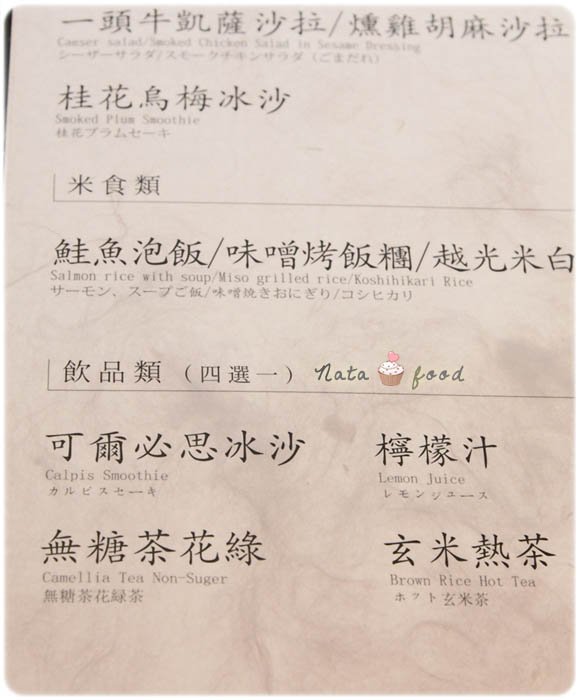 一頭牛凱薩沙拉/燻雞胡麻沙拉
Caeser salad/Smoked Chicken Salad in Sesame Dressing
シーザーサラダ/スモークチキンサラダ (ごまだれ)
桂花烏梅冰沙
Smoked Plum Smoothie
桂花プラムセーキ
米食類
鮭魚泡飯/味噌烤飯糰/越光米白
Salmon rice with soup/Miso grilled rice/Koshihikari Rice
サーモン、スープご飯/味噌焼きおにぎり/コシヒカリ
飲品類 (四選一) Nata food
可爾必思冰沙 檸檬汁
Calpis Smoothie Lemon Juice
カルピスセーキ レモンジュース
無糖茶花綠 玄米熱茶
Camellia Tea Non-Suger Brown Rice Hot Tea
無糖茶花緑茶 ホット玄米茶